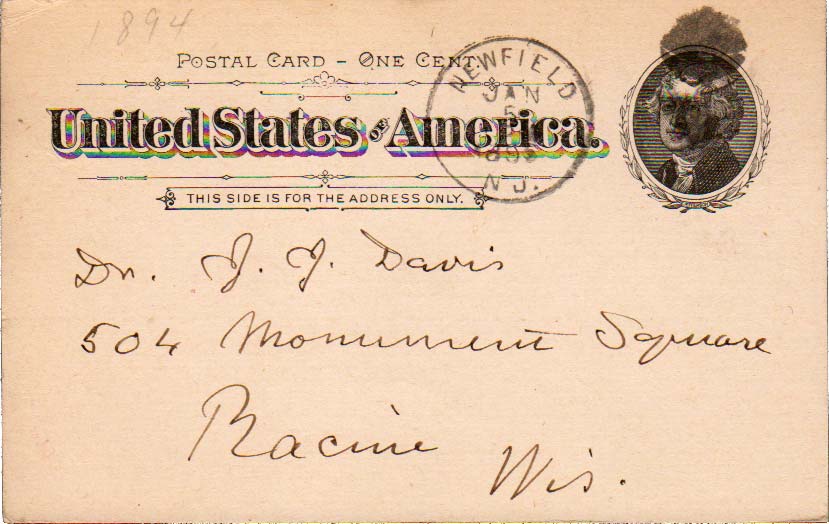 1894
POSTAL CARD - ONE CENT.
United States of America.
THIS SIDE IS FOR THE ADDRESS ONLY.
NEWFIELD
JAN
5
N.J.
Dr. J. J. Davis
504 Monument Square
Racine
Wis.